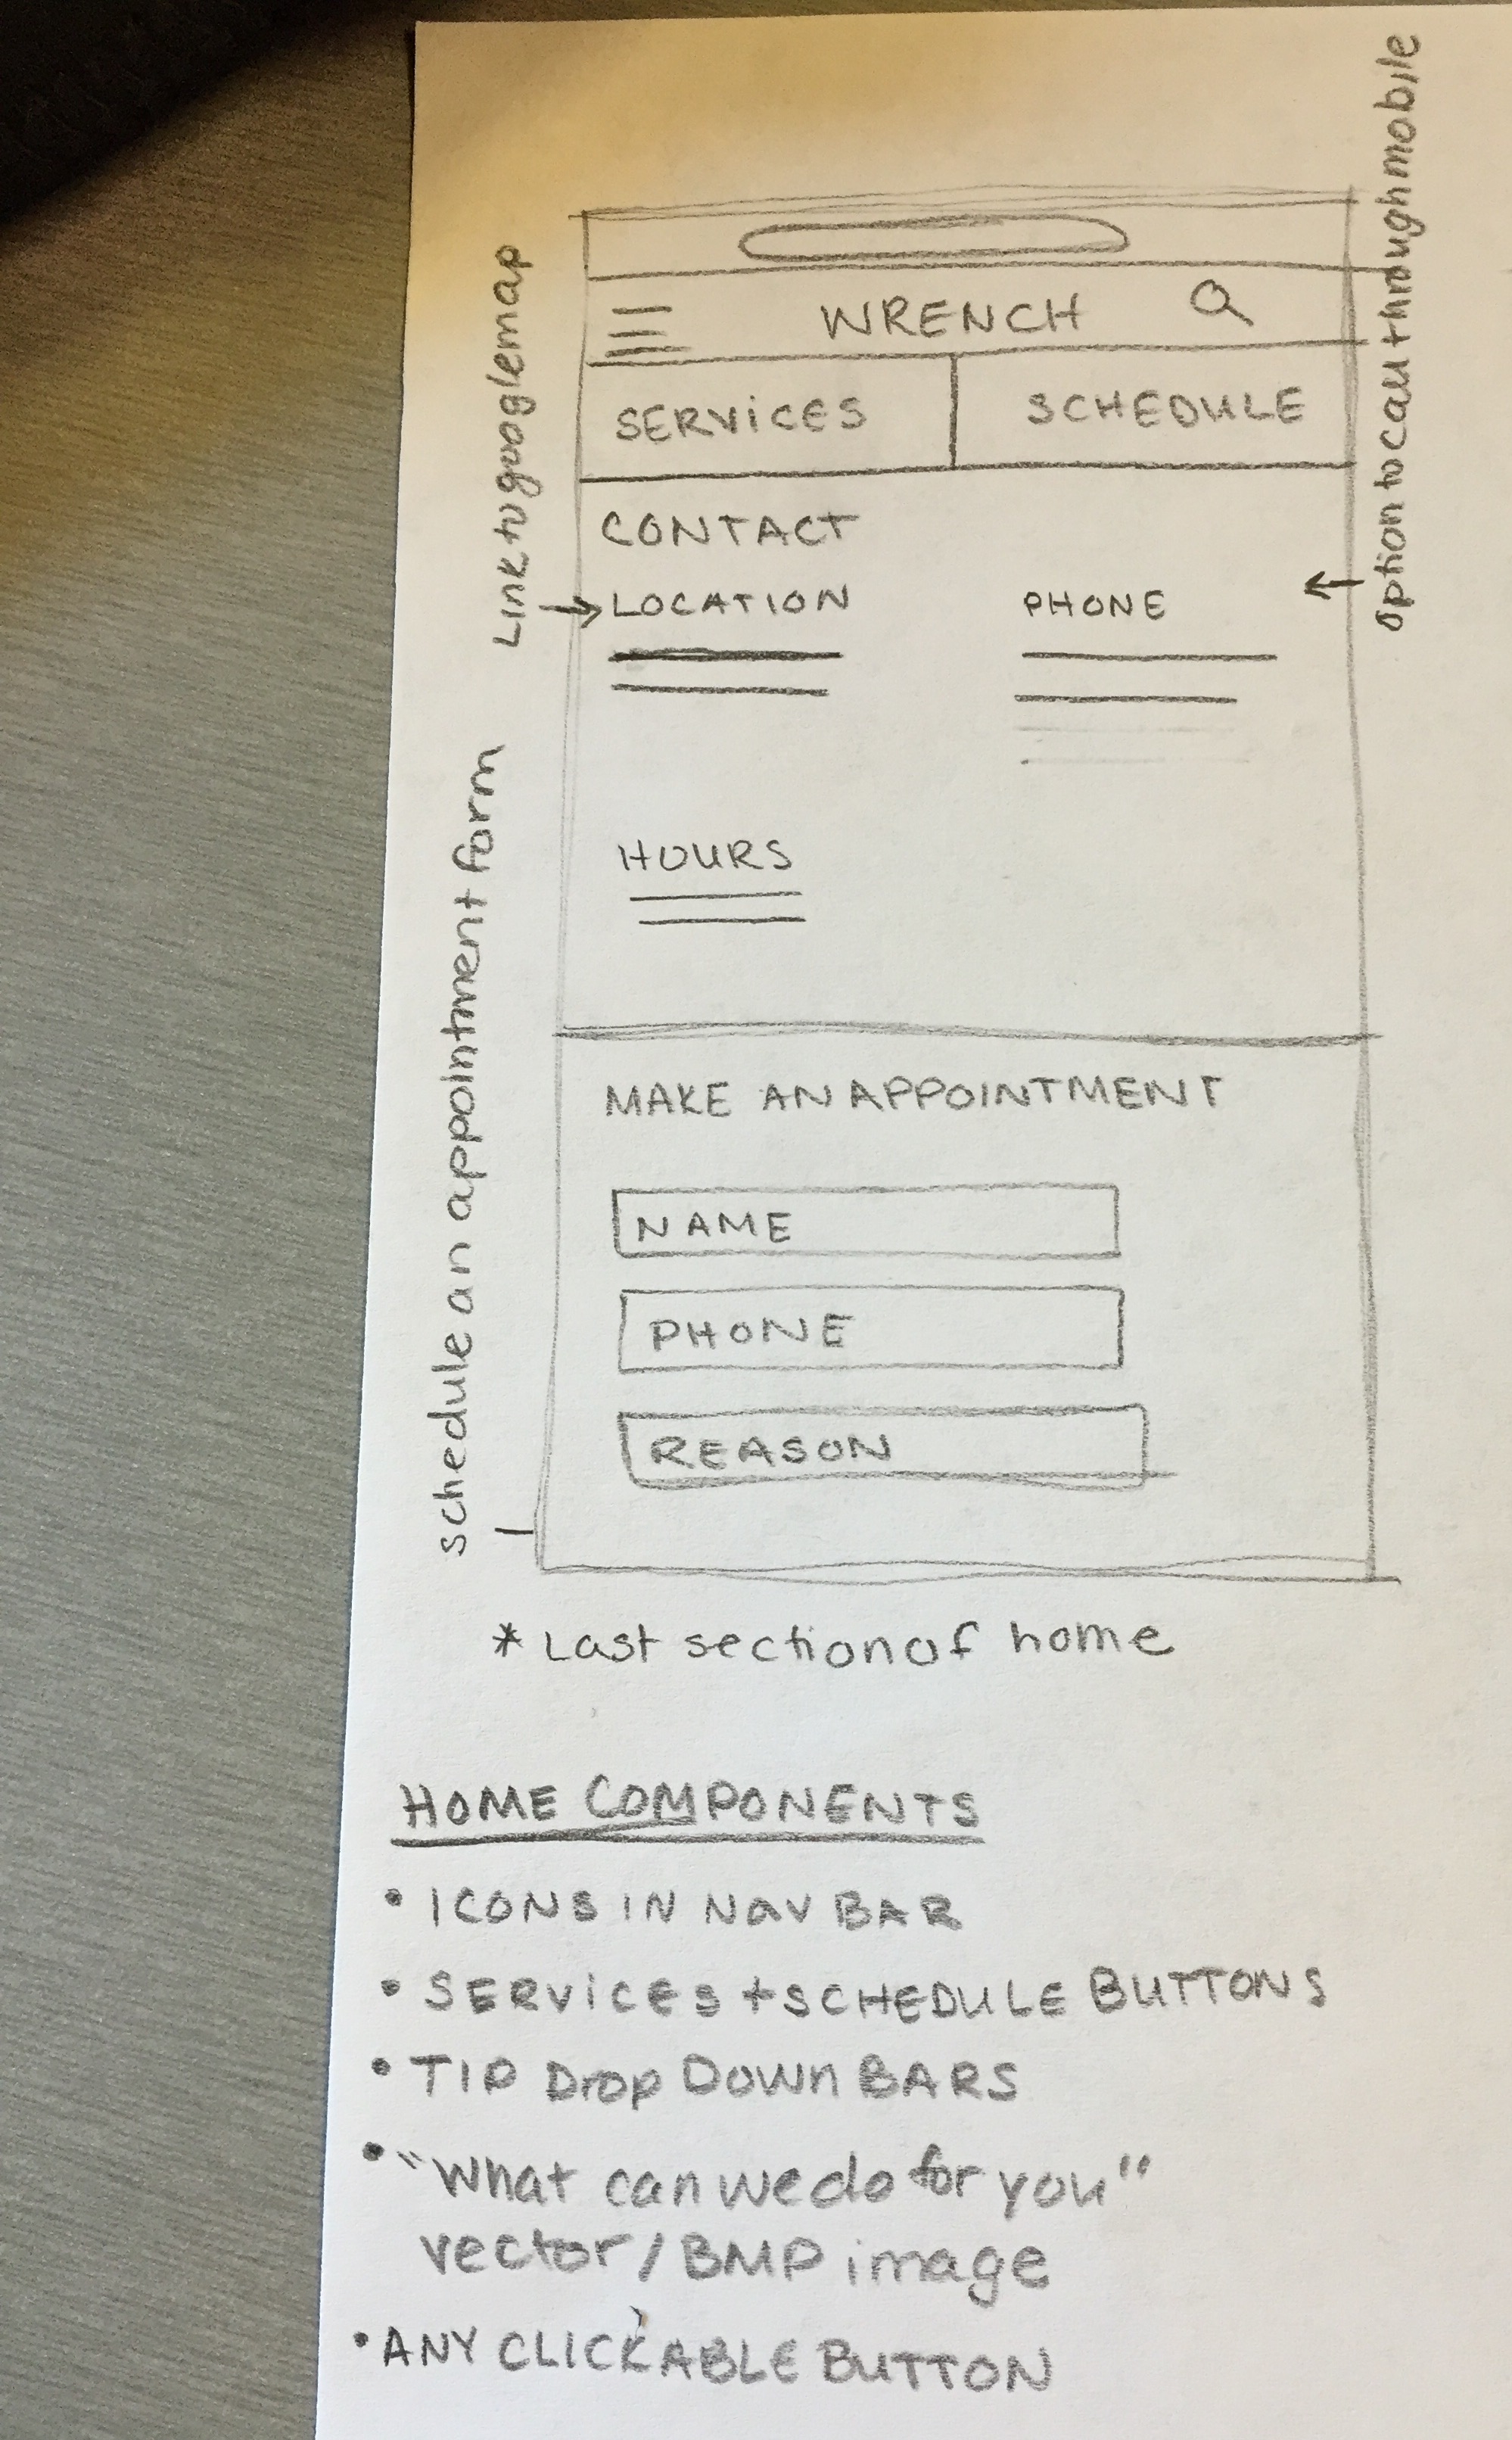 WRENCH
SERViCES
SCHEDULE
CONTACT
Link to google map
LOCATION
PHONE
option to call through mobile
HOURS
MAKE AN APPOINTMENT
NAME
PHONE
REASON
schedule an appointment form
* Last section of home
HOME COMPONENTS
• ICONS IN NaV BAR
• SERViCES + SCHEDULE BUTTONS
• TIP Drop DOWn BARS
• "What can we do for you"
vector / BMP image
• ANY CLICKABLE BUTTON